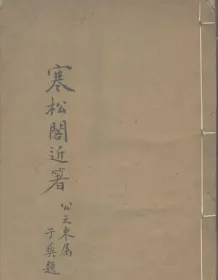 寒松閣近著
公之東屬
子奐題